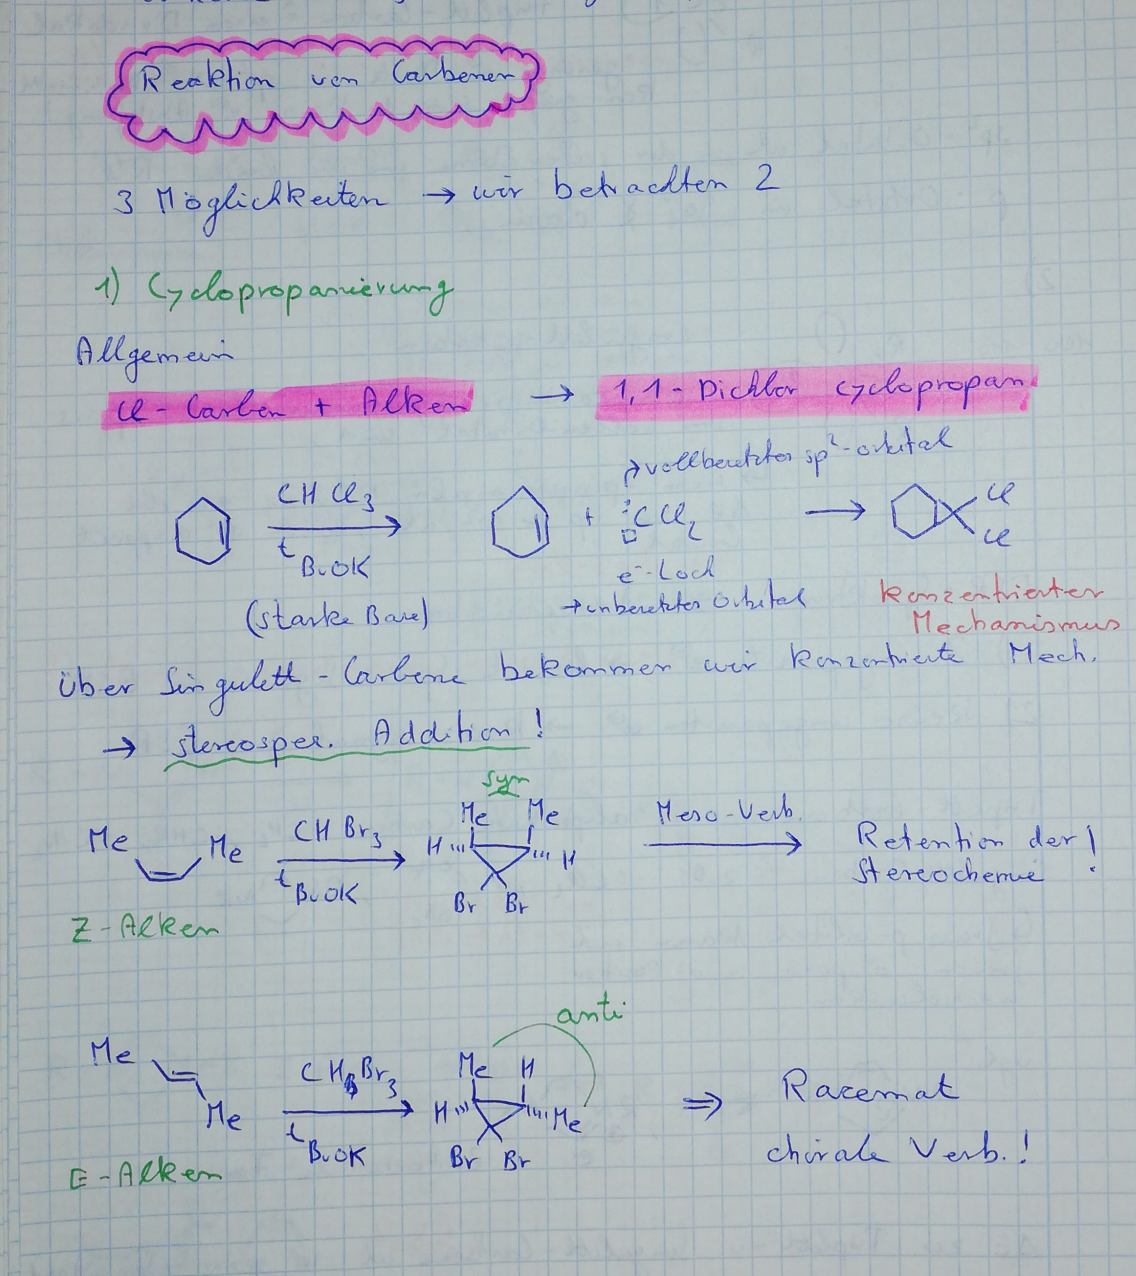 Reaktion von Carbenen
3 Möglichkeiten → wir betrachten 2
1) Cyclopropanierung
Allgemein
Cl - Carben + Alken → 1,1 - Dichlor cyclopropan
→ vollbesetzter sp²-orbital
CHCl₃
ᵗBuOK
(starke Base)
+ :CCl₂ →
Cl
Cl
e⁻-Loch
→ unbesetztes Orbital
konzentrierter
Mechanismus
über Singulett - Carbene bekommen wir konzentrierte Mech.
→ stereospez. Addition!
syn
Me Me CHBr₃ ᵗBuOK
Me Me
H H
Br Br
Meso-Verb.
Retention der
Stereochemie !
Z-Alken
anti
Me Me CHBr₃ ᵗBuOK
Me H
H Me
Br Br
⇒ Racemat
chirale Verb.!
E-Alken